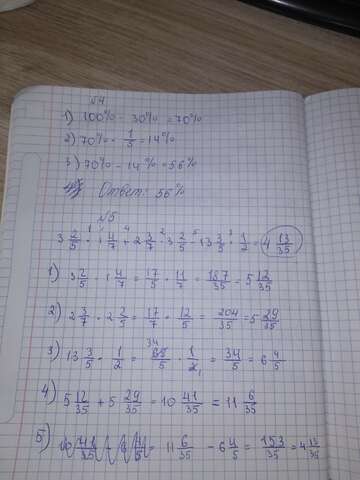 №4
1) 100% - 30% = 70%
2) 70% · 1/5 = 14%
3) 70% - 14% = 56%
Ответ: 56%
№5
3 2/5 · 1 4/7 + 2 3/7 · 2 2/5 - 13 3/5 · 1/2 = 4 13/35
1) 3 2/5 · 1 4/7 = 17/5 · 11/7 = 187/35 = 5 12/35
2) 2 3/7 · 2 2/5 = 17/7 · 12/5 = 204/35 = 5 29/35
3) 13 3/5 · 1/2 = 68/5 · 1/2 = 34/5 = 6 4/5
4) 5 12/35 + 5 29/35 = 10 41/35 = 11 6/35
5) = 11 6/35 - 6 4/5 = 153/35 = 4 13/35